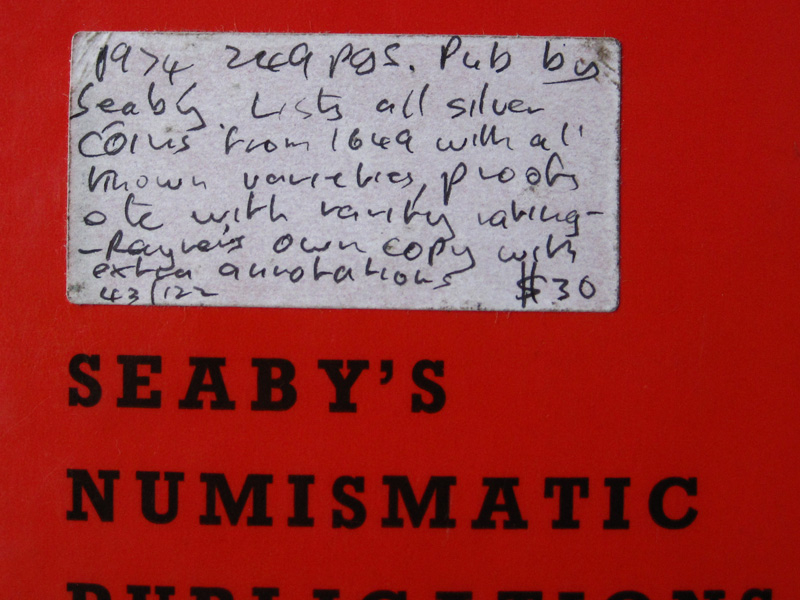 1974 249 pgs. Pub by
Seaby. Lists all silver
coins from 1649 with all
known varieties, proofs
etc with rarity rating -
- Rayner's own copy with
extra annotations
43/122 $30
SEABY'S
NUMISMATIC
PUBLICATIONS